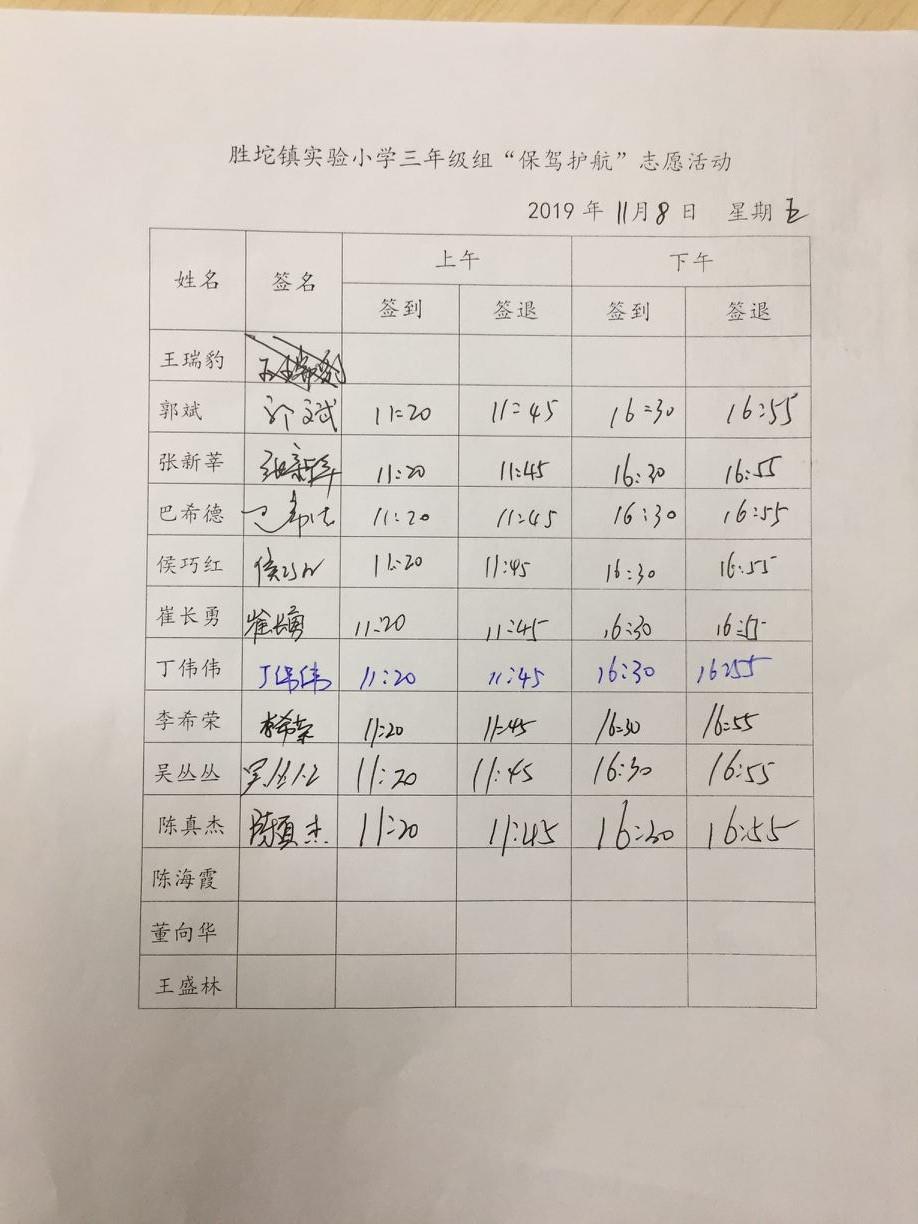 胜坨镇实验小学三年级组“保驾护航”志愿活动
2019 年 11月 8 日 星期 五
姓名 签名 上午 下午
签到 签退 签到 签退
王瑞豹 王瑞豹
郭斌 郭斌 11:20 11:45 16:30 16:55
张新莘 张新莘 11:20 11:45 16:30 16:55
巴希德 巴希德 11:20 11:45 16:30 16:55
侯巧红 侯巧红 11:20 11:45 16:30 16:55
崔长勇 崔长勇 11:20 11:45 16:30 16:55
丁伟伟 丁伟伟 11:20 11:45 16:30 16:55
李希荣 李希荣 11:20 11:45 16:30 16:55
吴丛丛 吴丛丛 11:20 11:45 16:30 16:55
陈真杰 陈真杰 11:20 11:45 16:30 16:55
陈海霞
董向华
王盛林